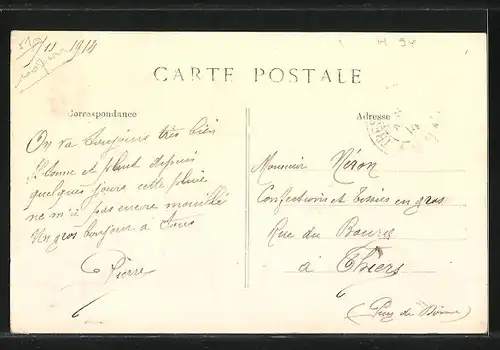 11 1914
H 94
CARTE POSTALE
Correspondance
Adresse
On va toujours très bien
Il tonne et pleut depuis
quelques jours cette pluie
ne m'a pas encore mouillé
Un gros bonjour à Tous
Pierre
Monsieur Néron
Confections et Tissus en gros
Rue du Bourg
à Thiers
(Puy de Dôme)